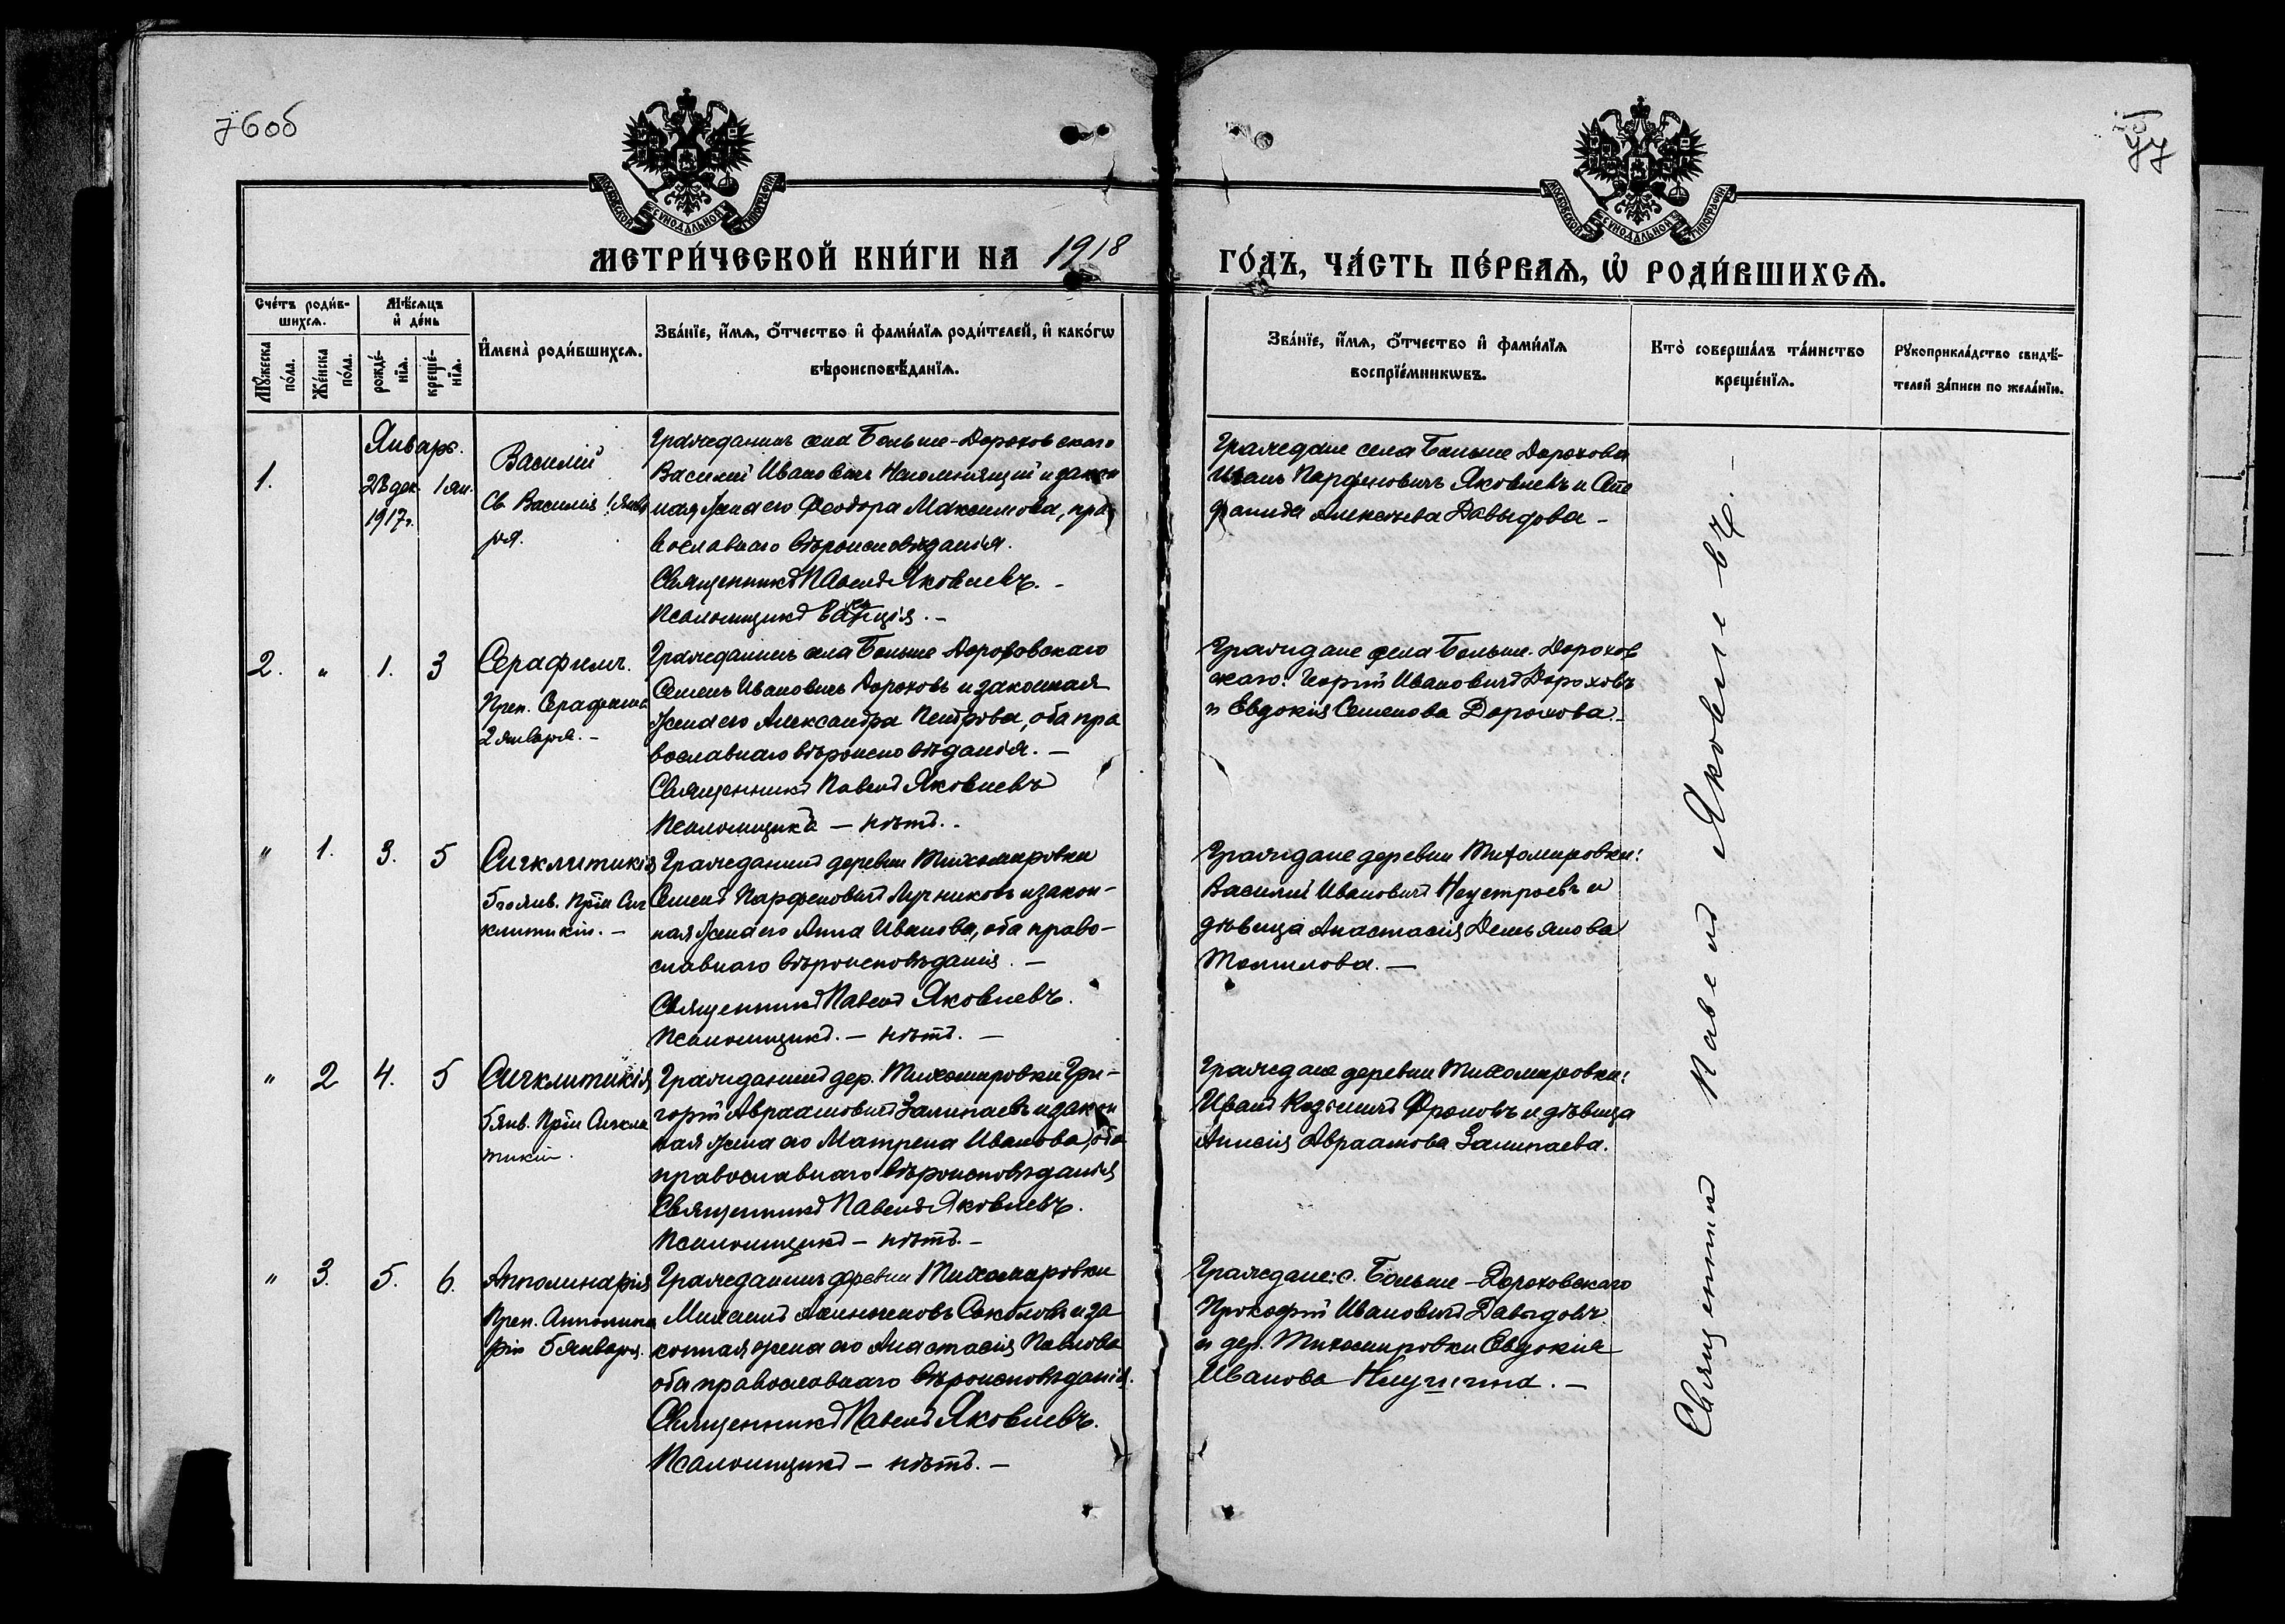 76об
77
МОСКОВСКОЙ СѴНОДАЛЬНОЙ ТИПОГРАФІИ
МОСКОВСКОЙ СѴНОДАЛЬНОЙ ТИПОГРАФІИ
МЕТРИ́ЧЕСКОЙ КНИ́ГИ НА 1918
ГО́ДЪ, ЧА́СТЬ ПЕ́РВАѦ, Ѡ҆ РОДИ́ВШИХСѦ.
Сче́тъ роди́в-
шихсѧ.
Мѣ́сѧцъ
и҆ де́нь
Мꙋ́жеска
по́ла.
Же́нска
по́ла.
рожде́-
нїѧ.
креще́-
нїѧ.
И҆мена̀ роди́вшихсѧ.
Зва́нїе, и҆́мѧ, ѻ҆́тчество и҆ фами́лїѧ роди́телей, и҆ како́гѡ
вѣроисповѣ́данїѧ.
Зва́нїе, и҆́мѧ, ѻ҆́тчество и҆ фами́лїѧ
воспрїе́мникѡвъ.
Кто̀ соверша́лъ та́инство
креще́нїѧ.
Рꙋкоприкла́дство свидѣ́-
телей за́писи по жела́нїю.
Январь.
1.
28 дек. 1 ян.
1917 г.
Василій
Св. Василія 1 Янва
ря.
Гражданинъ села Больше-Дороховскаго
Василий Ивановичъ Непомнящий и закон
ная жена его Феодора Максимова, пра
вославнаго вѣроисповѣданія.
Священникъ Павелъ Яковлевъ. -
Псаломщикъ
Граждане села Больше Дорохова
Иванъ Парфеновичъ Яковлевъ и Сте
фанида Алексѣева Давыдова -
2. " 1. 3
Серафимъ.
Преп. Серафима
2 января. -
Гражданинъ села Больше Дороховскаго
Семенъ Ивановичъ Дороховъ и законная
жена его Александра Петрова, оба пра
вославнаго вѣроисповѣданія. -
Священникъ Павелъ Яковлевъ
Псаломщика - нѣтъ. -
Граждане села Больше-Дорохов
скаго: Георгій Ивановичъ Дороховъ
и Евдокія Семенова Дорохова. -
" 1. 3. 5
Сигклитикія
5го янв. Прпн Сиг
клитикіи. -
Гражданинъ деревни Тихомировки
Семенъ Парфеновичъ Лучниковъ и закон-
ная жена его Анна Иванова, оба право-
славнаго вѣроисповѣданія. -
Священникъ Павелъ Яковлевъ.
Псаломщикъ. - нѣтъ. -
Граждане деревни Тихомировки:
Василий Ивановичъ Неустроевъ и
дѣвица Анастасія Демьянова
Томилова. -
" 2 4. 5
Сигклитикія
5 янв. Прпн Сигкли
тикіи.
Гражданинъ дер. Тихомировки Гри-
горій Авраамовичъ Залипаевъ и закон
ная жена его Матрена Иванова, оба
православнаго вѣроисповѣданія
Священникъ Павелъ Яковлевъ.
Псаломщикъ - нѣтъ. -
Граждане деревни Тихомировки:
Иванъ Козьмичъ Фроловъ и дѣвица
Анисія Авраамова Залипаева.
" 3. 5. 6.
Апполинарія
Преп. Апполина
ріи 5 января.
Гражданинъ деревни Тихомировки
Михаилъ Соколовъ и за
конная жена его Анастасія Павлова
оба православнаго вѣроисповѣданія.
Священникъ Павелъ Яковлевъ.
Псаломщикъ - нѣтъ. -
Граждане: с. Больше-Дороховскаго
Прокофій Ивановичъ Давыдовъ
и дер. Тихомировки Евдокія
Иванова
Священникъ Павелъ Яковлевъ. -